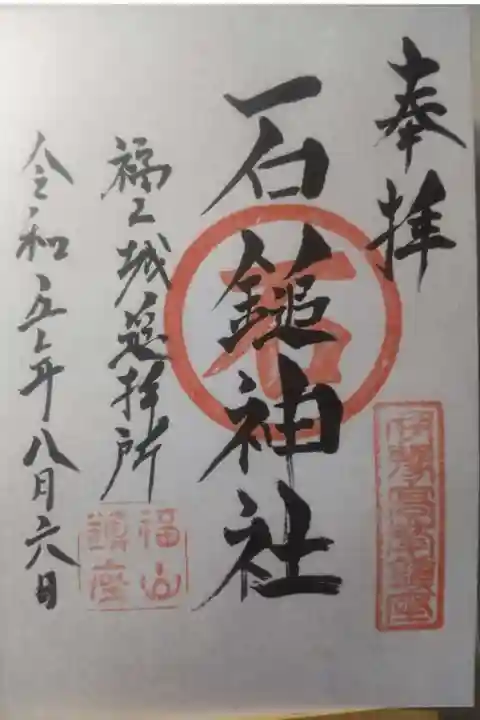 奉拝
石鎚神社
石
伊豫高嶺鎮座
福山城遥拝所
福山鎮座
令和五年八月六日